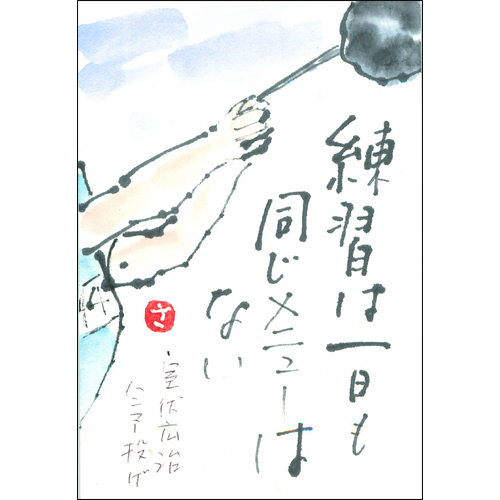 練習は一日も
同じメニューは
ない
さ
室伏広治
ハンマー投げ